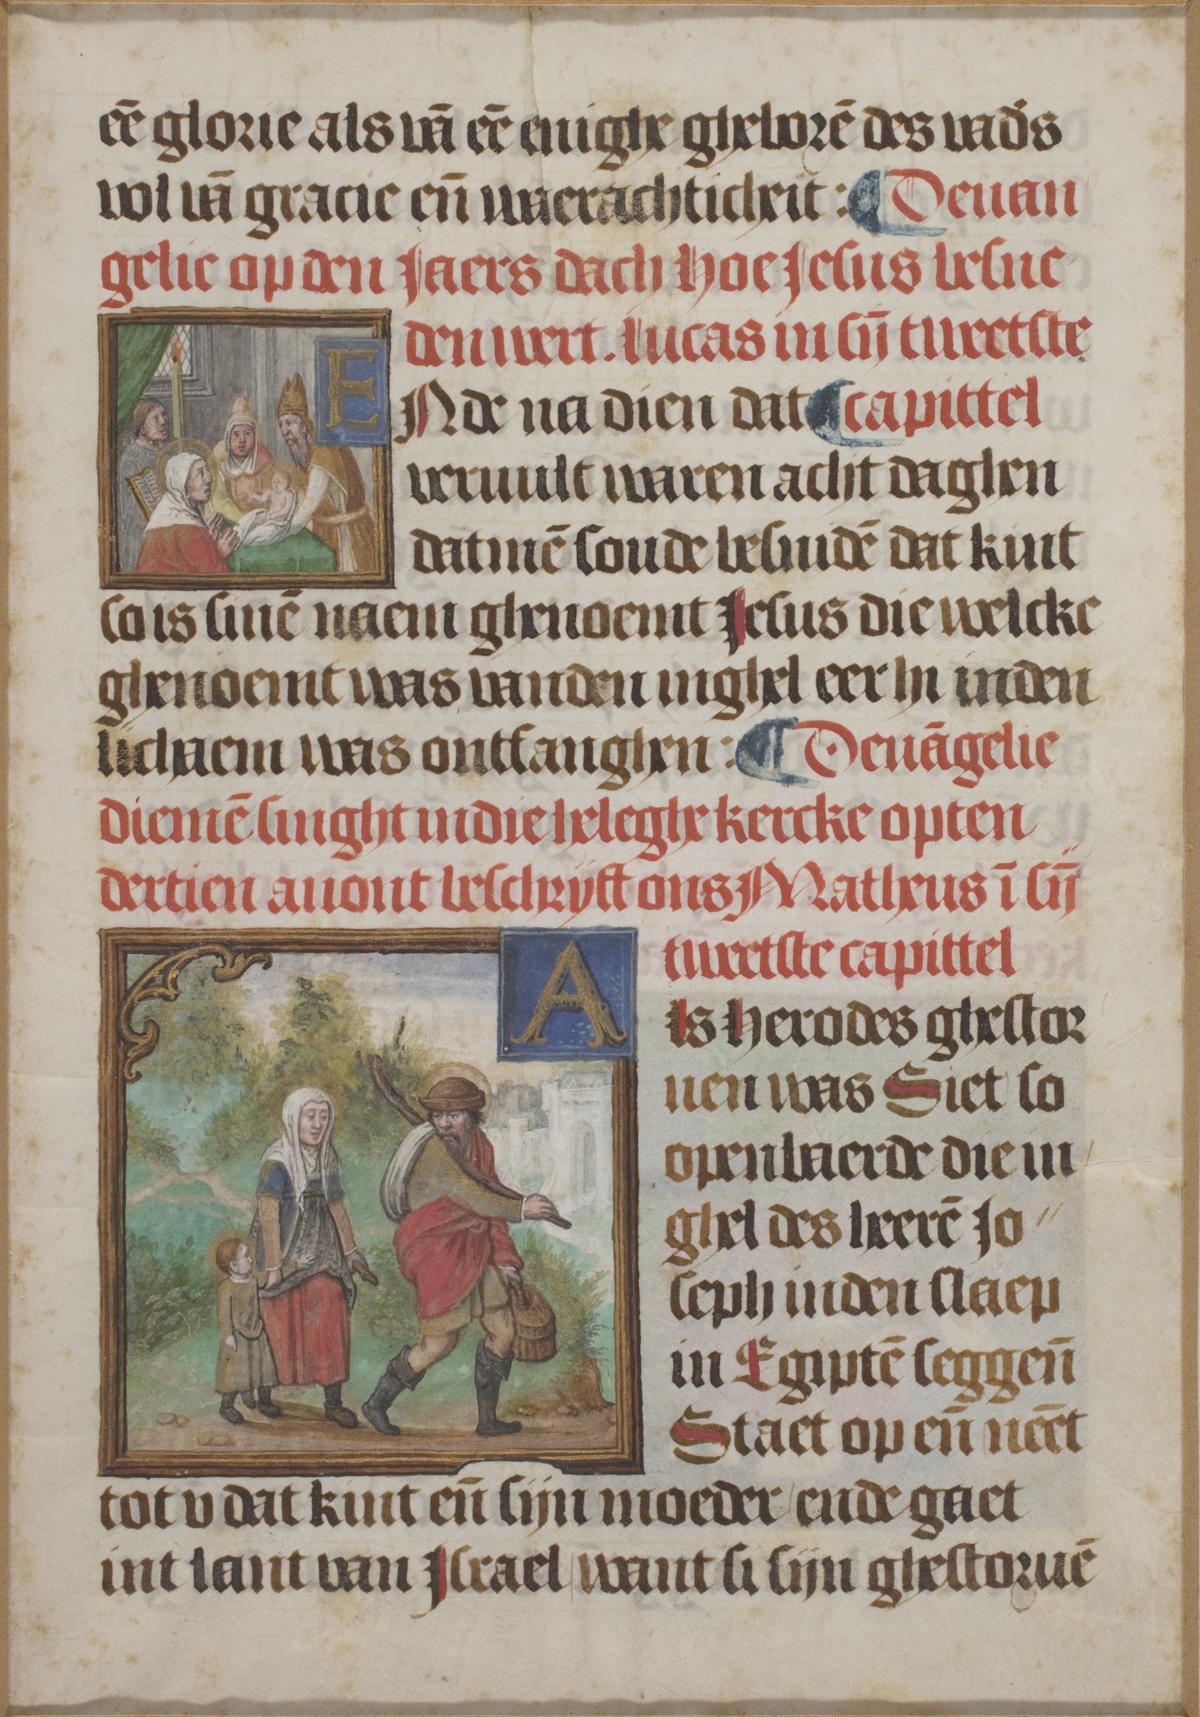 eē glorie als vā eē enighe gheborē des vad's
vol vā gracie eñ waerachticheit : ¶ Deuan
gelie op den Jaers dach hoe Jesus besne
den wert. Lucas in sijn tweetste
E Nde na dien dat ¶ capittel
veruult waren acht daghen
datmē soude besnidē dat kint
so is sinē naem ghenoemt Jesus die welcke
ghenoemt was vanden inghel eer hi inden
lichaem was ontfanghen : ¶ Deuāgelie
diemē singht in die heleghe kercke op ten
dertien auont beschrijft ons Matheus ī sijn
tweetste capittel
A ls Herodes ghestor
uen was Siet so
openbaerde die in
ghel des heerē Jo〃
seph inden slaep
in Egiptē seggeñ
Staet op eñ neēt
tot v dat kint eñ sijn moeder / ende gaet
int lant van Israel / want si sijn ghestoruē